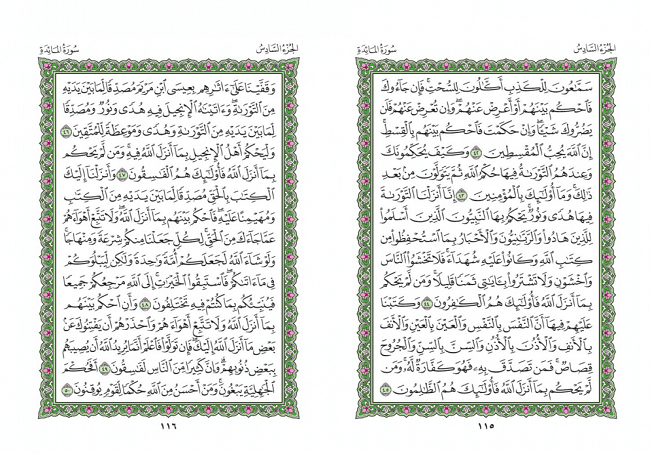 الجُزْءُ السَّادِسُ
سُورَةُ المَائِدَةِ
سَمَّٰعُونَ لِلْكَذِبِ أَكَّٰلُونَ لِلسُّحْتِۚ فَإِن جَآءُوكَ
فَٱحْكُم بَيْنَهُمْ أَوْ أَعْرِضْ عَنْهُمْۖ وَإِن تُعْرِضْ عَنْهُمْ فَلَن
يَضُرُّوكَ شَيْـًٔاۖ وَإِنْ حَكَمْتَ فَٱحْكُم بَيْنَهُم بِٱلْقِسْطِۚ
إِنَّ ٱللَّهَ يُحِبُّ ٱلْمُقْسِطِينَ ٤٢ وَكَيْفَ يُحَكِّمُونَكَ
وَعِندَهُمُ ٱلتَّوْرَىٰةُ فِيهَا حُكْمُ ٱللَّهِ ثُمَّ يَتَوَلَّوْنَ مِنۢ بَعْدِ
ذَٰلِكَۚ وَمَآ أُو۟لَٰٓئِكَ بِٱلْمُؤْمِنِينَ ٤٣ إِنَّآ أَنزَلْنَا ٱلتَّوْرَىٰةَ
فِيهَا هُدًى وَنُورٌۚ يَحْكُمُ بِهَا ٱلنَّبِيُّونَ ٱلَّذِينَ أَسْلَمُوا۟
لِلَّذِينَ هَادُوا۟ وَٱلرَّبَّٰنِيُّونَ وَٱلْأَحْبَارُ بِمَا ٱسْتُحْفِظُوا۟ مِن
كِتَٰبِ ٱللَّهِ وَكَانُوا۟ عَلَيْهِ شُهَدَآءَۚ فَلَا تَخْشَوُا۟ ٱلنَّاسَ
وَٱخْشَوْنِ وَلَا تَشْتَرُوا۟ بِـَٔايَٰتِى ثَمَنًا قَلِيلًاۚ وَمَن لَّمْ يَحْكُم
بِمَآ أَنزَلَ ٱللَّهُ فَأُو۟لَٰٓئِكَ هُمُ ٱلْكَٰفِرُونَ ٤٤ وَكَتَبْنَا
عَلَيْهِمْ فِيهَآ أَنَّ ٱلنَّفْسَ بِٱلنَّفْسِ وَٱلْعَيْنَ بِٱلْعَيْنِ وَٱلْأَنفَ
بِٱلْأَنفِ وَٱلْأُذُنَ بِٱلْأُذُنِ وَٱلسِّنَّ بِٱلسِّنِّ وَٱلْجُرُوحَ
قِصَاصٌۚ فَمَن تَصَدَّقَ بِهِۦ فَهُوَ كَفَّارَةٌ لَّهُۥۚ وَمَن
لَّمْ يَحْكُم بِمَآ أَنزَلَ ٱللَّهُ فَأُو۟لَٰٓئِكَ هُمُ ٱلظَّٰلِمُونَ ٤٥
١١٥
الجُزْءُ السَّادِسُ
سُورَةُ المَائِدَةِ
وَقَفَّيْنَا عَلَىٰٓ ءَاثَٰرِهِم بِعِيسَى ٱبْنِ مَرْيَمَ مُصَدِّقًا لِّمَا بَيْنَ يَدَيْهِ
مِنَ ٱلتَّوْرَىٰةِۖ وَءَاتَيْنَٰهُ ٱلْإِنجِيلَ فِيهِ هُدًى وَنُورٌ وَمُصَدِّقًا
لِّمَا بَيْنَ يَدَيْهِ مِنَ ٱلتَّوْرَىٰةِ وَهُدًى وَمَوْعِظَةً لِّلْمُتَّقِينَ ٤٦
وَلْيَحْكُمْ أَهْلُ ٱلْإِنجِيلِ بِمَآ أَنزَلَ ٱللَّهُ فِيهِۚ وَمَن لَّمْ يَحْكُم
بِمَآ أَنزَلَ ٱللَّهُ فَأُو۟لَٰٓئِكَ هُمُ ٱلْفَٰسِقُونَ ٤٧ وَأَنزَلْنَآ إِلَيْكَ
ٱلْكِتَٰبَ بِٱلْحَقِّ مُصَدِّقًا لِّمَا بَيْنَ يَدَيْهِ مِنَ ٱلْكِتَٰبِ
وَمُهَيْمِنًا عَلَيْهِۖ فَٱحْكُم بَيْنَهُم بِمَآ أَنزَلَ ٱللَّهُۖ وَلَا تَتَّبِعْ أَهْوَآءَهُمْ
عَمَّا جَآءَكَ مِنَ ٱلْحَقِّۚ لِكُلٍّ جَعَلْنَا مِنكُمْ شِرْعَةً وَمِنْهَاجًاۚ
وَلَوْ شَآءَ ٱللَّهُ لَجَعَلَكُمْ أُمَّةً وَٰحِدَةً وَلَٰكِن لِّيَبْلُوَكُمْ
فِى مَآ ءَاتَىٰكُمْۖ فَٱسْتَبِقُوا۟ ٱلْخَيْرَٰتِۚ إِلَى ٱللَّهِ مَرْجِعُكُمْ جَمِيعًا
فَيُنَبِّئُكُم بِمَا كُنتُمْ فِيهِ تَخْتَلِفُونَ ٤٨ وَأَنِ ٱحْكُم بَيْنَهُم
بِمَآ أَنزَلَ ٱللَّهُ وَلَا تَتَّبِعْ أَهْوَآءَهُمْ وَٱحْذَرْهُمْ أَن يَفْتِنُوكَ عَنۢ
بَعْضِ مَآ أَنزَلَ ٱللَّهُ إِلَيْكَۖ فَإِن تَوَلَّوْا۟ فَٱعْلَمْ أَنَّمَا يُرِيدُ ٱللَّهُ أَن يُصِيبَهُم
بِبَعْضِ ذُنُوبِهِمْۗ وَإِنَّ كَثِيرًا مِّنَ ٱلنَّاسِ لَفَٰسِقُونَ ٤٩ أَفَحُكْمَ
ٱلْجَٰهِلِيَّةِ يَبْغُونَۚ وَمَنْ أَحْسَنُ مِنَ ٱللَّهِ حُكْمًا لِّقَوْمٍ يُوقِنُونَ ٥٠
١١٦